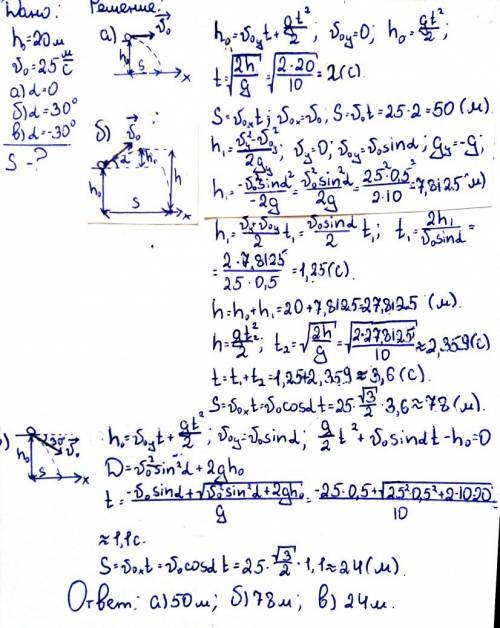 Дано:
h₀=20м
v₀=25 м/с
а) α=0
б) α=30°
в) α=-30°
S-?
Решение:
а) v₀
h₀
S
x
h₀=v₀yt+gt²/2; v₀y=0; h₀=gt²/2;
t=√(2h/g)=√(2·20/10)=2(с).
S=v₀xt; v₀x=v₀; S=v₀t=25·2=50(м).
б) v₀
α
h₁
h₀
h
S
x
h₁=(vy²-v₀y²)/2gy; vy=0; v₀y=v₀sinα; gy=-g;
h₁=-v₀²sinα²/-2g=v₀²sinα²/2g=25²·0,5²/2·10=7,8125(м)
h₁=(vy+v₀y)/2 t₁=v₀sinα/2 t₁; t₁=2h₁/v₀sinα=
=2·7,8125/25·0,5=1,25(с).
h=h₀+h₁=20+7,8125=27,8125 (м).
h=gt₂²/2; t₂=√(2h/g)=√(2·27,8125/10)≈2,359(с)
t=t₁+t₂=1,25+2,359≈3,6(с).
S=v₀xt=v₀cosαt=25·√3/2·3,6≈78(м).
в) 30°
v₀
h₀
S
x
h₀=v₀yt+gt²/2; v₀y=v₀sinα; g/2 t²+v₀sinαt-h₀=0
D=v₀²sin²α+2gh₀
t=(-v₀sinα+√(v₀²sin²α+2gh₀))/g=(-25·0,5+√(25²·0,5²+2·10·20))/10=
≈1,1с.
S=v₀xt=v₀cosαt=25·√3/2·1,1≈24(м).
Ответ: а)50м; б)78м; в) 24м.